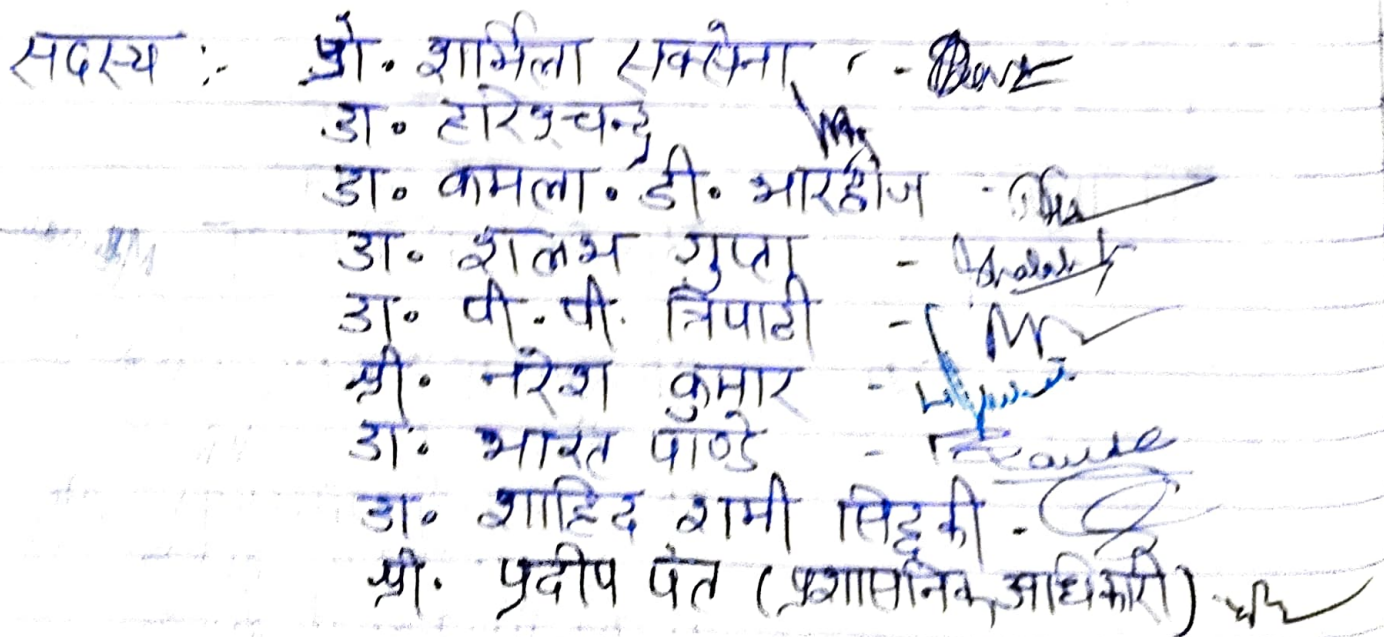 सदस्य :- प्रो. शार्मिला सक्सेना -
डा॰ हरिश्चन्द्र
डा॰ कमला. डी. भारद्वाज -
डा॰ शलभ गुप्ता -
डा॰ पी. पी. त्रिपाठी -
श्री. नरेश कुमार -
डा. भारत पाण्डे -
डा॰ शाहिद शमी सिद्दकी -
श्री. प्रदीप पंत (प्रशासनिक अधिकारी) -